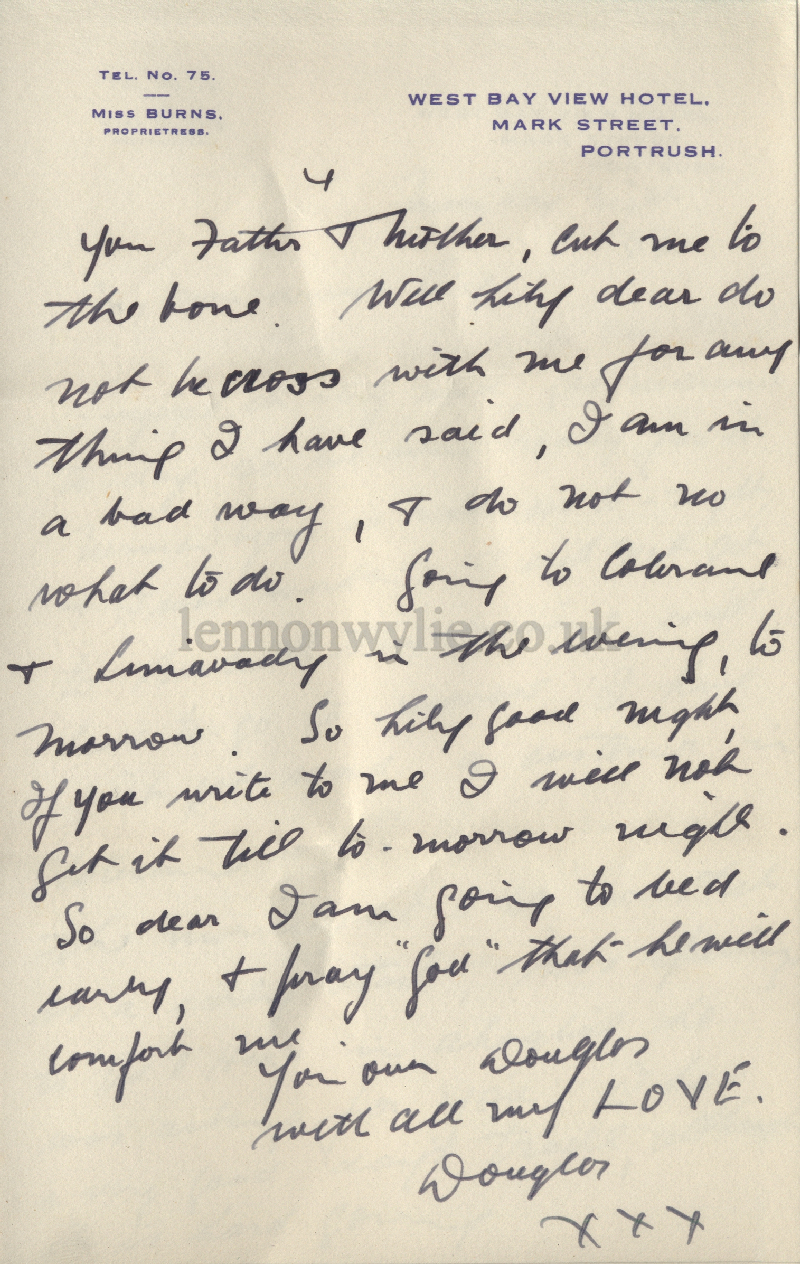 TEL. NO. 75.
MISS BURNS,
PROPRIETRESS.
WEST BAY VIEW HOTEL,
MARK STREET.
PORTRUSH.
4
You Father + Mother, cut me to
the bone. Well Lily dear do
not be cross with me for any
thing I have said, I am in
a bad way, + do not no
what to do. Going to Colerane
lennonwylie.co.uk
+ Limavady in the evening, to
morrow. So Lily good night,
If you write to me I will not
get it till to-morrow night.
So dear I am going to bed
early, + pray "God" that he will
comfort me
You own Douglas
with all my LOVE.
Douglas
X X X